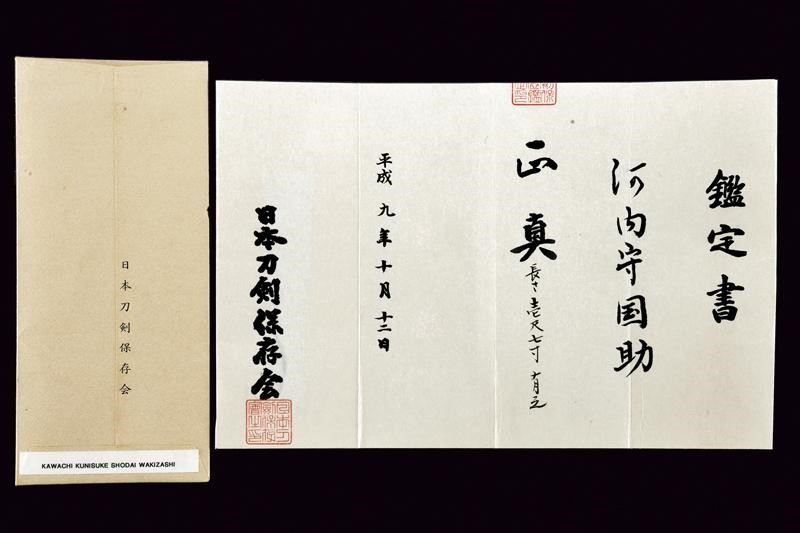 鑑定書
河内守国助
正真
長さ壱尺七寸 有之
平成九年十月十二日
日本刀剣保存会
日本刀剣保存会
KAWACHI KUNISUKE SHODAI WAKIZASHI